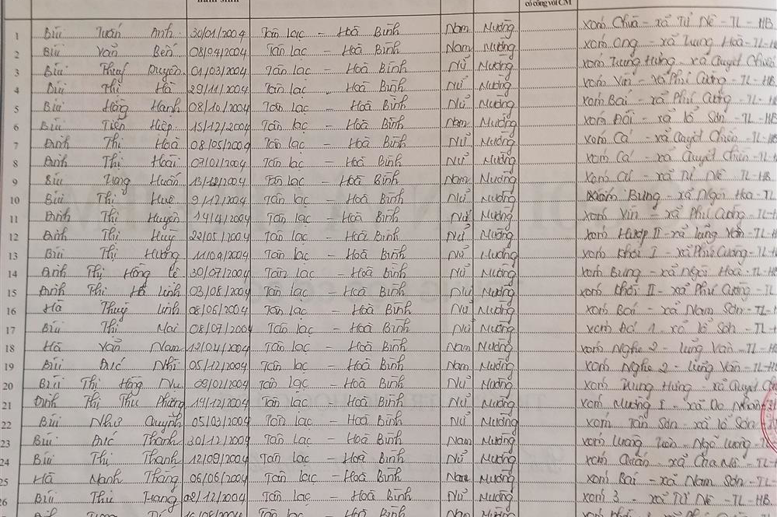 có công với CM
1 Bùi Tuấn Anh 30/01/2004 Tân Lạc - Hoà Bình Nam Mường xóm Chùa - xã Tử Nê - TL - HB
2 Bùi Văn Bến 08/04/2004 Tân Lạc - Hoà Bình Nam Mường xóm Ong - xã Trung Hoà - TL - HB
3 Bùi Duyên 01/03/2004 Tân Lạc - Hoà Bình Nữ Mường xóm Trung Hưng - xã Quyết Chiến
4 Bùi Thị Hà 29/11/2004 Tân Lạc - Hoà Bình Nữ Mường xóm Vin - xã Phú Cường - TL - HB
5 Bùi Hồng Hạnh 08/10/2004 Tân Lạc - Hoà Bình Nữ Mường xóm Bái - xã Phú Cường - TL - H
6 Bùi Tiến Hiệp 15/12/2004 Tân Lạc - Hoà Bình Nam Mường xóm - xã Lỗ Sơn - TL - HB
7 Đinh Thị Hoà 08/05/2004 Tân Lạc - Hoà Bình Nữ Mường xóm Cá - xã Quyết Chiến - TL
8 Đinh Thị Hoài 07/01/2004 Tân Lạc - Hoà Bình Nữ Mường xóm Cá - xã Quyết Chiến - TL
9 Bùi Huấn 2004 Tân Lạc - Hoà Bình Nam Mường xóm Cá - xã Tử Nê - TL - HB
10 Bùi Thị Huệ 9/12/2004 Tân Lạc - Hoà Bình Nữ Mường xóm Bưng - xã Ngòi Hoa - TL
11 Đinh Thị Huyền 14/4/2004 Tân Lạc - Hoà Bình Nữ Mường xóm Vin - xã Phú Cường - TL - H
12 Đinh Thị Huy 22/05/2004 Tân Lạc - Hoà Bình Nữ Mường xóm II - xã Lũng Vân - TL - H
13 Bùi Thị Hường 11/09/2004 Tân Lạc - Hoà Bình Nữ Mường xóm Khời I - xã Phú Cường - TL
14 Đinh Thị Hồng Lê 30/07/2004 Tân Lạc - Hoà Bình Nữ Mường xóm Bưng - xã Ngòi Hoa - TL - H
15 Đinh Thị Linh 03/08/2004 Tân Lạc - Hoà Bình Nữ Mường xóm Khời II - xã Phú Cường - TL
16 Hà Thuỳ Linh 08/05/2004 Tân Lạc - Hoà Bình Nữ Mường xóm Bái - xã Nam Sơn - TL
17 Bùi Thị Mai 08/07/2004 Tân Lạc - Hoà Bình Nữ Mường xóm 1 - xã Lỗ Sơn - TL
18 Hà Văn Nam 12/04/2004 Tân Lạc - Hoà Bình Nam Mường xóm Nghẹ 2 - Lũng Vân - TL - H
19 Bùi Đức Nhi 05/12/2004 Tân Lạc - Hoà Bình Nam Mường xóm Nghẹ 2 - Lũng Vân - TL
20 Bùi Thị Hồng 2004 Tân Lạc - Hoà Bình Nữ Mường xóm Trung Hưng - xã Quyết
21 Đinh Thị Thu Phương 14/12/2004 Tân Lạc - Hoà Bình Nữ Mường xóm Mường I - xã Do Nhân
22 Bùi Như Quỳnh 05/03/2004 Tân Lạc - Hoà Bình Nữ Mường xóm Tân Sơn - xã Lỗ Sơn
23 Bùi Đức Thanh 30/12/2004 Tân Lạc - Hoà Bình Nam Mường xóm Luông - Ngổ Luông - TL
24 Bùi Thị Thanh 12/09/2004 Tân Lạc - Hoà Bình Nữ Mường xóm - xã - TL
25 Hà Mạnh Thắng 06/06/2004 Tân Lạc - Hoà Bình Nam Mường xóm Bái - xã Nam Sơn - TL
26 Bùi Thu Trang 08/12/2004 Tân Lạc - Hoà Bình Nữ Mường xóm 3 - xã Tử Nê - TL - HB